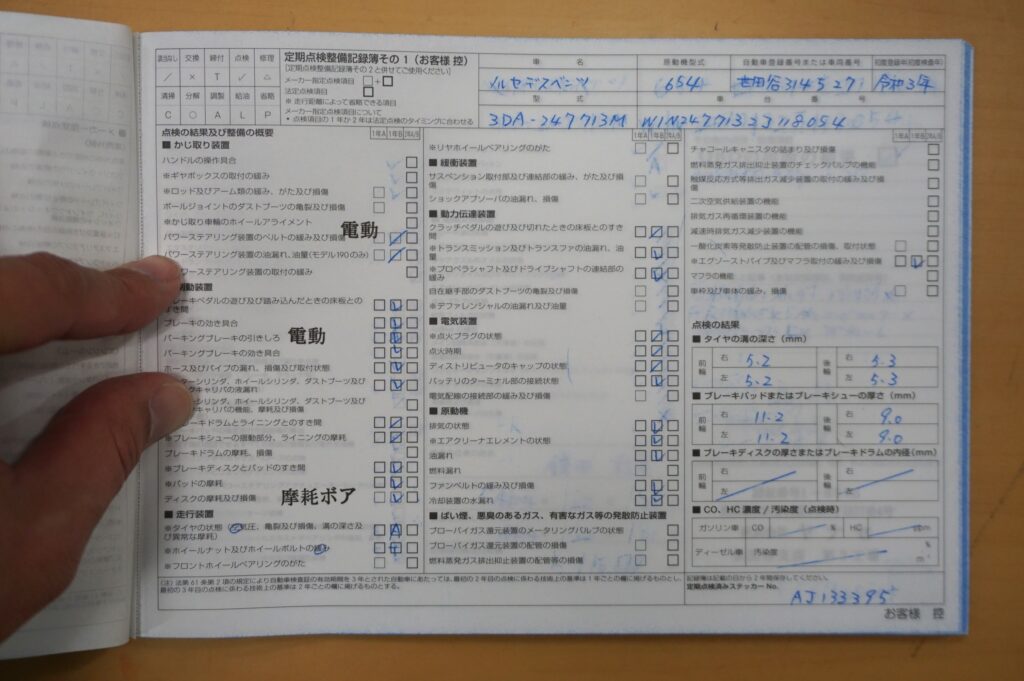 該当なし 交換 締付 点検 修理
／ × T ✓ △
清掃 分解 調製 給油 省略
C ○ A L P
定期点検整備記録簿その 1（お客様 控）
(定期点検整備記録簿その 2 と併せてご使用ください)
メーカー指定点検項目 □＋□
法定点検項目 □
※ 走行距離によって省略できる項目
メーカー指定点検項目について
・点検項目の 1 年か 2 年は法定点検のタイミングに合わせる
車 名 原動機型式 自動車登録番号または車両番号 初度登録年(初度検査年)
メルセデスベンツ 654 世田谷314 令和3年
型 式 車 台 番 号
3DA-247713M W1N2477132J118054
点検の結果及び整備の概要
1年A 1年B 2年A/B
■ かじ取り装置
ハンドルの操作具合
※ギヤボックスの取付の緩み
※ロッド及びアーム類の緩み、がた及び損傷
ボールジョイントのダストブーツの亀裂及び損傷
※かじ取り車輪のホイールアライメント
パワーステアリング装置のベルトの緩み及び損傷
電動
パワーステアリング装置の油漏れ、油量(モデル190のみ)
ワーステアリング装置の取付の緩み
動装置
レーキペダルの遊び及び踏み込んだときの床板との
すき間
ブレーキの効き具合
パーキングブレーキの引きしろ
電動
パーキングブレーキの効き具合
ホース及びパイプの漏れ、損傷及び取付状態
ターシリンダ、ホイールシリンダ、ダストブーツ及び
キャリパの液漏れ
シリンダ、ホイールシリンダ、ダストブーツ及び
キャリパの機能、摩耗及び損傷
レーキドラムとライニングとのすき間
※ブレーキシューの摺動部分、ライニングの摩耗
ブレーキドラムの摩耗、損傷
※ブレーキディスクとパッドのすき間
※パッドの摩耗
ディスクの摩耗及び損傷
摩耗ボア
■ 走行装置
※タイヤの状態（空気圧、亀裂及び損傷、溝の深さ及
び異常な摩耗）
A
※ホイールナット及びホイールボルトの緩み
T
※フロントホイールベアリングのがた
※リヤホイールベアリングのがた
■ 緩衝装置
サスペンション取付部及び連結部の緩み、がた及び損
傷
ショックアブソーバの油漏れ、損傷
■ 動力伝達装置
クラッチペダルの遊び及び切れたときの床板とのすき
間
※トランスミッション及びトランスファの油漏れ、油
量
※プロペラシャフト及びドライブシャフトの連結部の
緩み
自在継手部のダストブーツの亀裂及び損傷
※デファレンシャルの油漏れ及び油量
■ 電気装置
※点火プラグの状態
点火時期
ディストリビュータのキャップの状態
バッテリのターミナル部の接続状態
電気配線の接続部の緩み及び損傷
■ 原動機
排気の状態
※エアクリーナエレメントの状態
油漏れ
燃料漏れ
ファンベルトの緩み及び損傷
冷却装置の水漏れ
■ ばい煙、悪臭のあるガス、有害なガス等の発散防止装置
ブローバイガス還元装置のメータリングバルブの状態
ブローバイガス還元装置の配管の損傷
燃料蒸発ガス排出抑止装置の配管等の損傷
1年A 1年B 2年A/B
チャコールキャニスタの詰まり及び損傷
燃料蒸発ガス排出抑止装置のチェックバルブの機能
触媒反応方式等排出ガス減少装置の取付の緩み及び損
傷
二次空気供給装置の機能
排気ガス再循環装置の機能
減速時排気ガス減少装置の機能
一酸化炭素等発散防止装置の配管の損傷、取付状態
※エグゾーストパイプ及びマフラ取付の緩み及び損傷
マフラの機能
車枠及び車体の緩み、損傷
点検の結果
■ タイヤの溝の深さ（mm）
前輪 右 5.2 後輪 右 5.3
左 5.2 左 5.3
■ ブレーキパッドまたはブレーキシューの厚さ（mm）
前輪 右 11.2 後輪 右 9.0
左 11.2 左 9.0
■ ブレーキディスクの厚さまたはブレーキドラムの内径(mm)
前輪 右 後輪 右
左 左
■ CO、HC 濃度 / 汚染度（点検時）
ガソリン車 CO % HC ppm
ディーゼル車 汚染度 %
m⁻¹
（注）法第 61 条第 2 項の規定により自動車検査証の有効期間を 3 年とされた自動車にあたっては、最初の 2 年目の点検に係わる技術上の基準は 1 年ごとの欄に掲げるものとし、
最初の 3 年目の点検に係わる技術上の基準は 2 年ごとの欄に掲げるものとする。
記録簿は記載の日から 2 年間保存してください。
定期点検済みステッカー No.
AJ133395
お客様 控